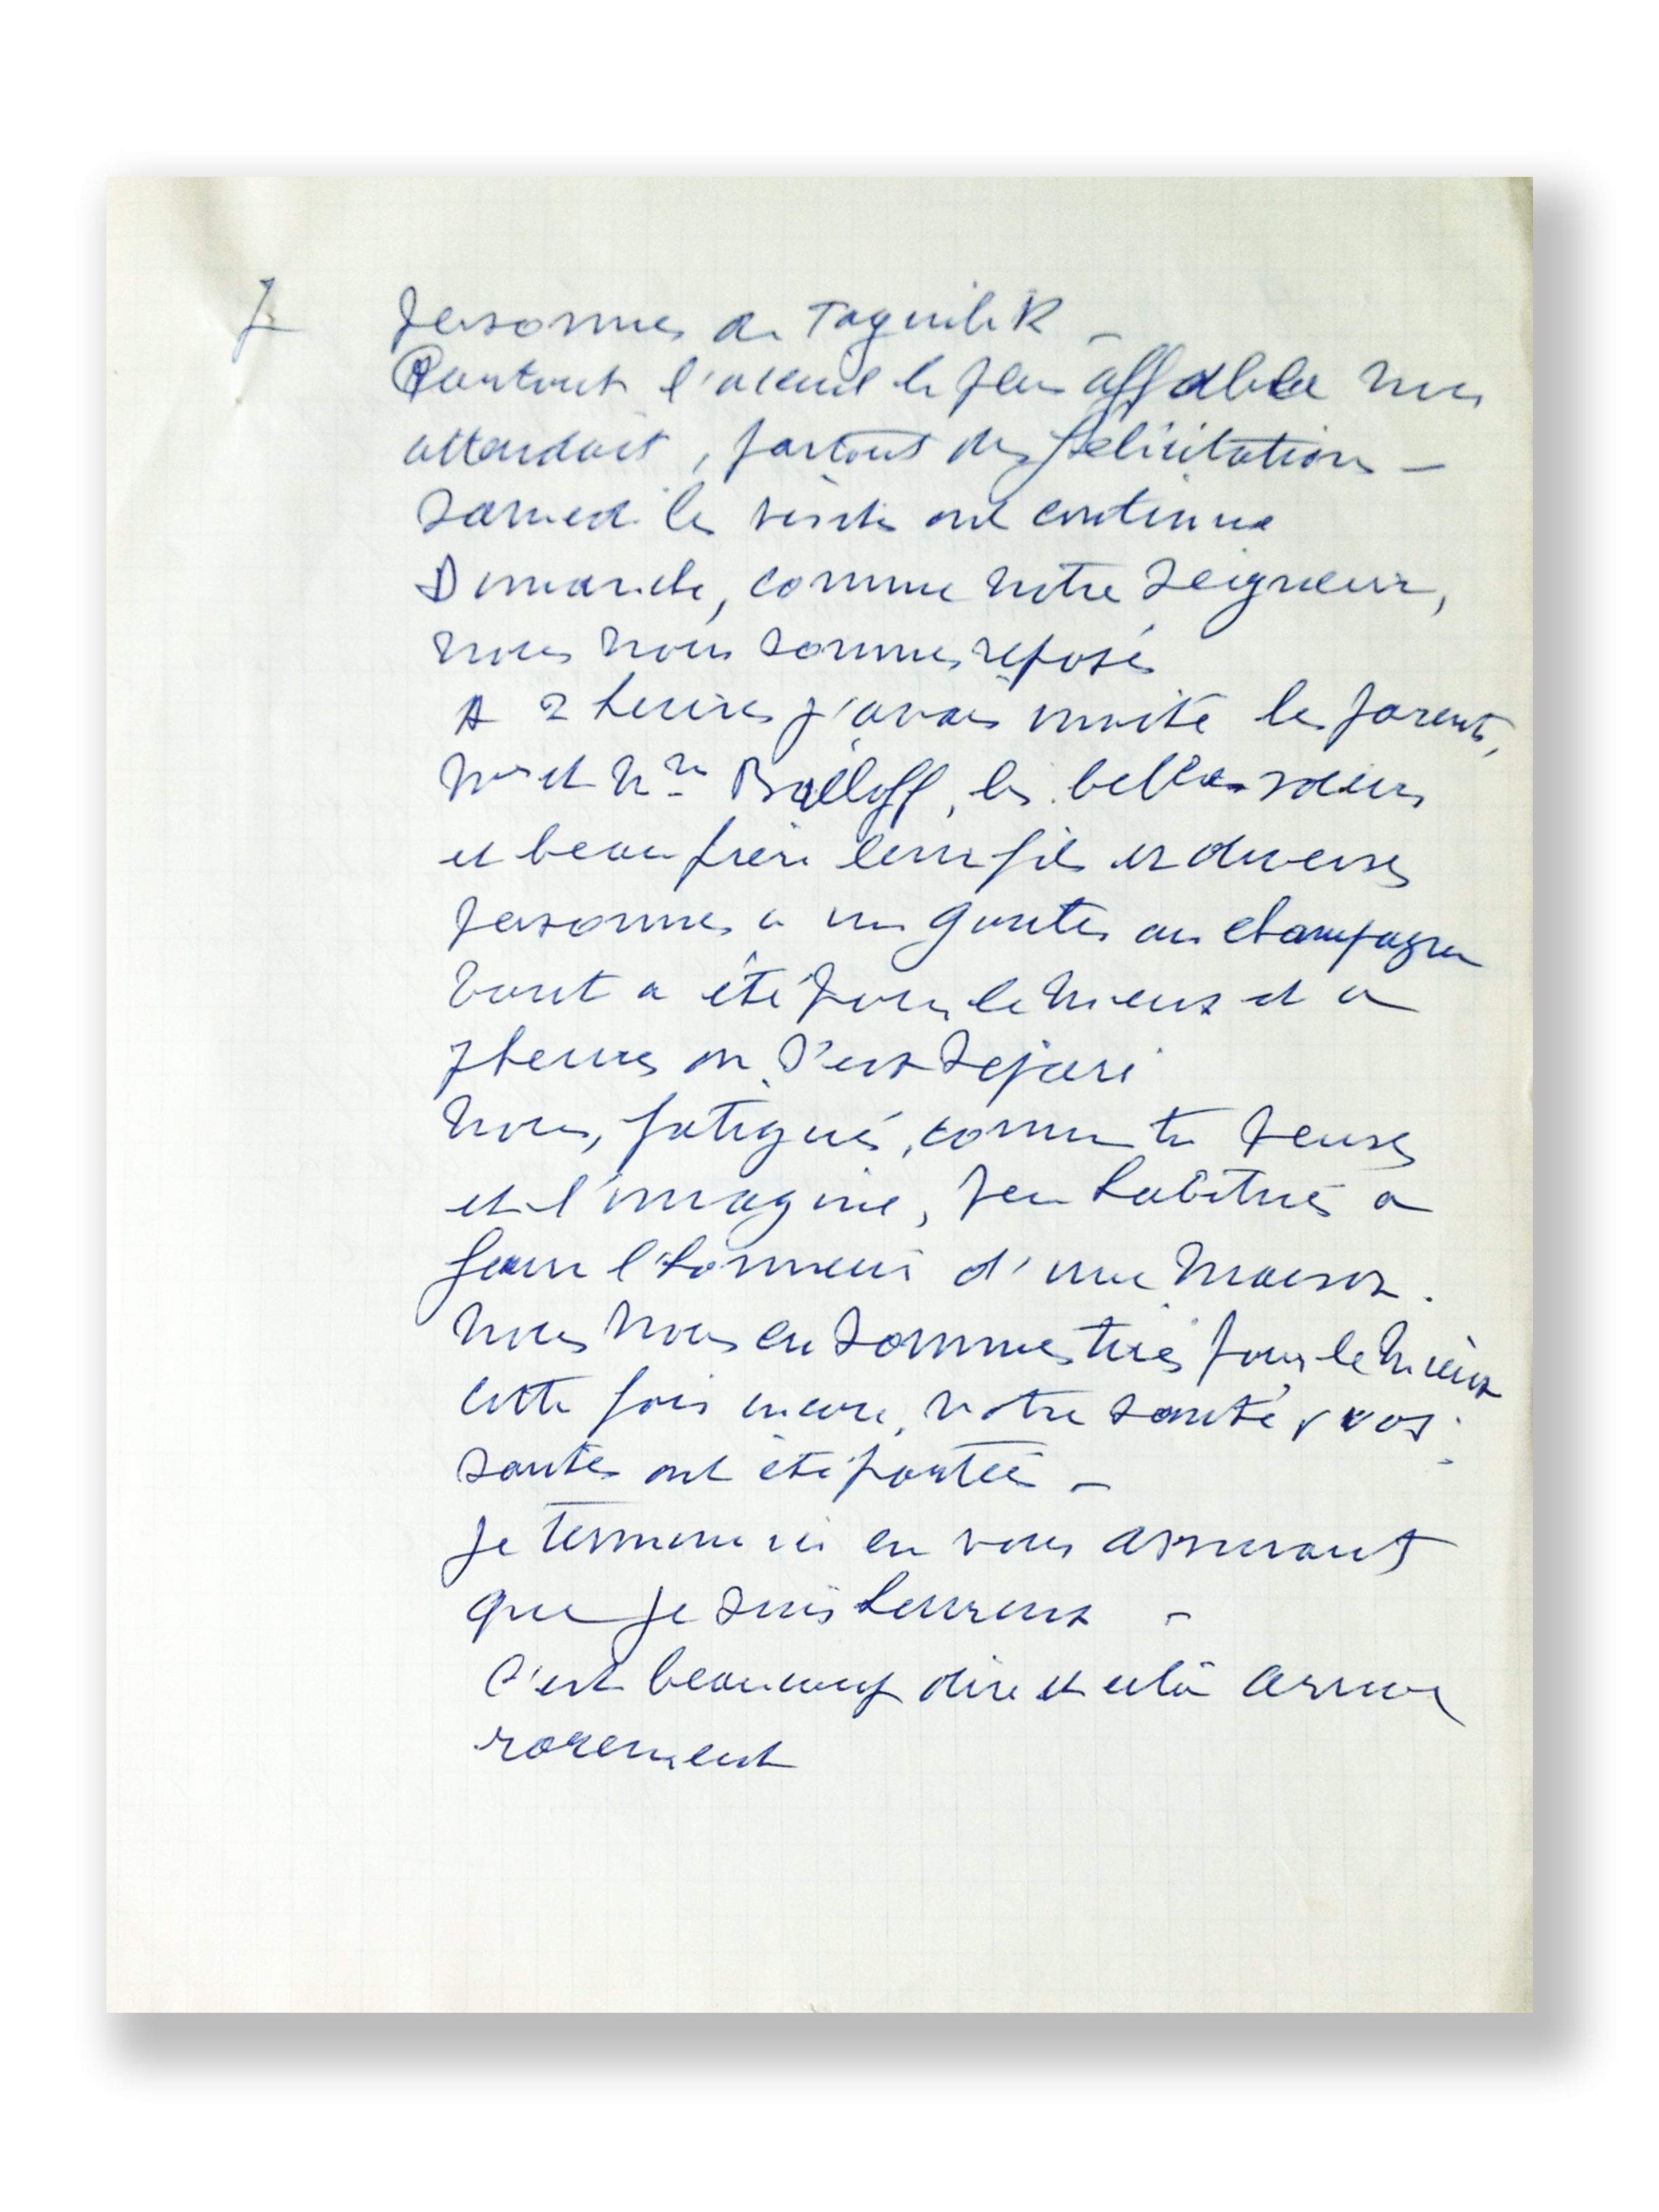 7
personnes de Taguilik -
Partout l'accueil le plus affable nous
attendait, partout des félicitations -
Samedi les visites ont continué
Dimanche, comme notre Seigneur,
nous nous sommes reposés
A 2 heures j'avais invité les parents,
Mr et Mme les belles-soeurs
et beau frère leur fils et diverses
personnes a un gouter au champagne
tout a été pour le mieux et a
7 heures on s'est séparé
Nous, fatigués, comme tu penses
et l'imagine, peu habitués a
faire l'honneur d'une maison.
Nous nous en sommes tirés pour le mieux
cette fois encore, votre santé, vos
santés ont été portées -
Je termine ici en vous assurant
que je suis heureux -
C'est beaucoup dire et cela arrive
rarement